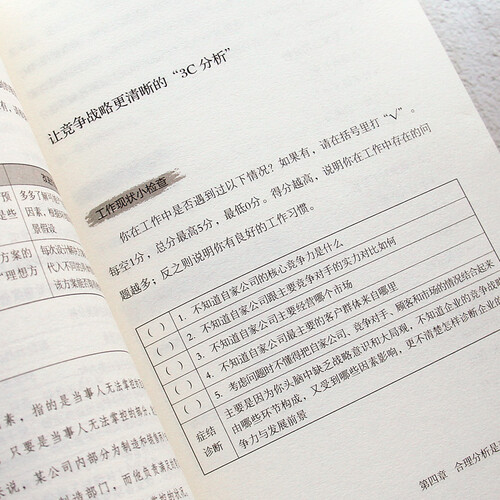 让竞争战略更清晰的“3C 分析”
工作现状小检查
你在工作中是否遇到过以下情况？如果有，请在括号里打“√”。
每空1分，总分最高5分，最低0分。得分越高，说明你在工作中存在的问
题越多；反之则说明你有良好的工作习惯。
（ ） 1. 不知道自家公司的核心竞争力是什么
（ ） 2. 不知道自家公司跟主要竞争对手的实力对比如何
（ ） 3. 不知道自家公司主要经营哪个市场
（ ） 4. 不知道自家公司最主要的客户群体来自哪里
（ ） 5. 考虑问题时不懂得把自家公司、竞争对手、顾客和市场的情况结合起来
症结
诊断
主要是因为你头脑中缺乏战略意识和大局观，不知道企业的竞争战略
由哪些环节构成，又受到哪些因素影响，更不清楚怎样诊断企业
争力与发展前景
第四章 合理分析是
预
是些
多多了解
因素，根据
景假设
方案的
“理想方
每次设计解
代入不同的
该方案能否
素，指的是当事人无法掌控
只要是当事人无法掌控的
来说，某公司内部分为制造和销售
制造部门，而他负责